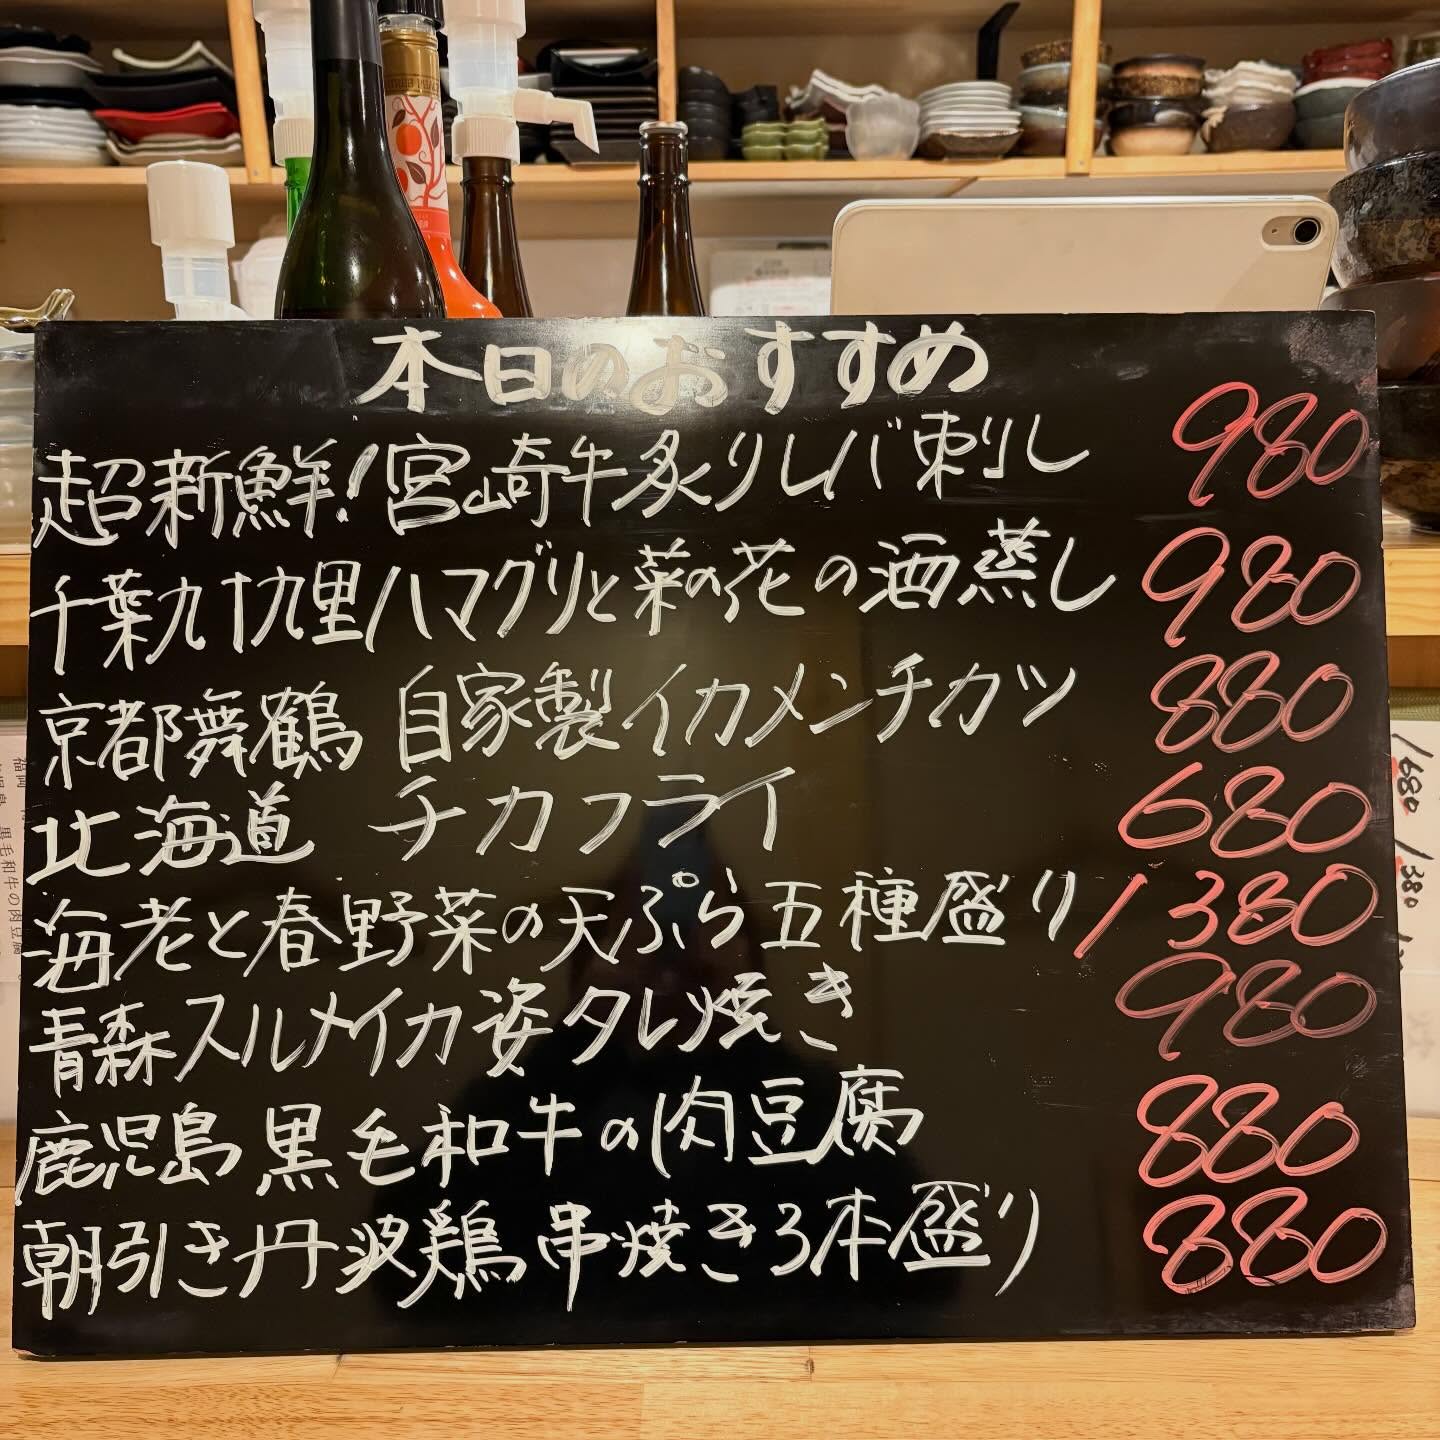 本日のおすすめ
超新鮮!宮崎牛炙りレバ刺し 980
千葉九十九里ハマグリと菜の花の酒蒸し 980
京都舞鶴 自家製イカメンチカツ 880
北海道 チカフライ 680
海老と春野菜の天ぷら五種盛り 1380
青森スルメイカ姿タレ焼き 980
鹿児島 黒毛和牛の肉豆腐 880
朝引き丹波鶏串焼き3本盛り 880
福岡
黒毛和牛の肉豆腐
1680
1380